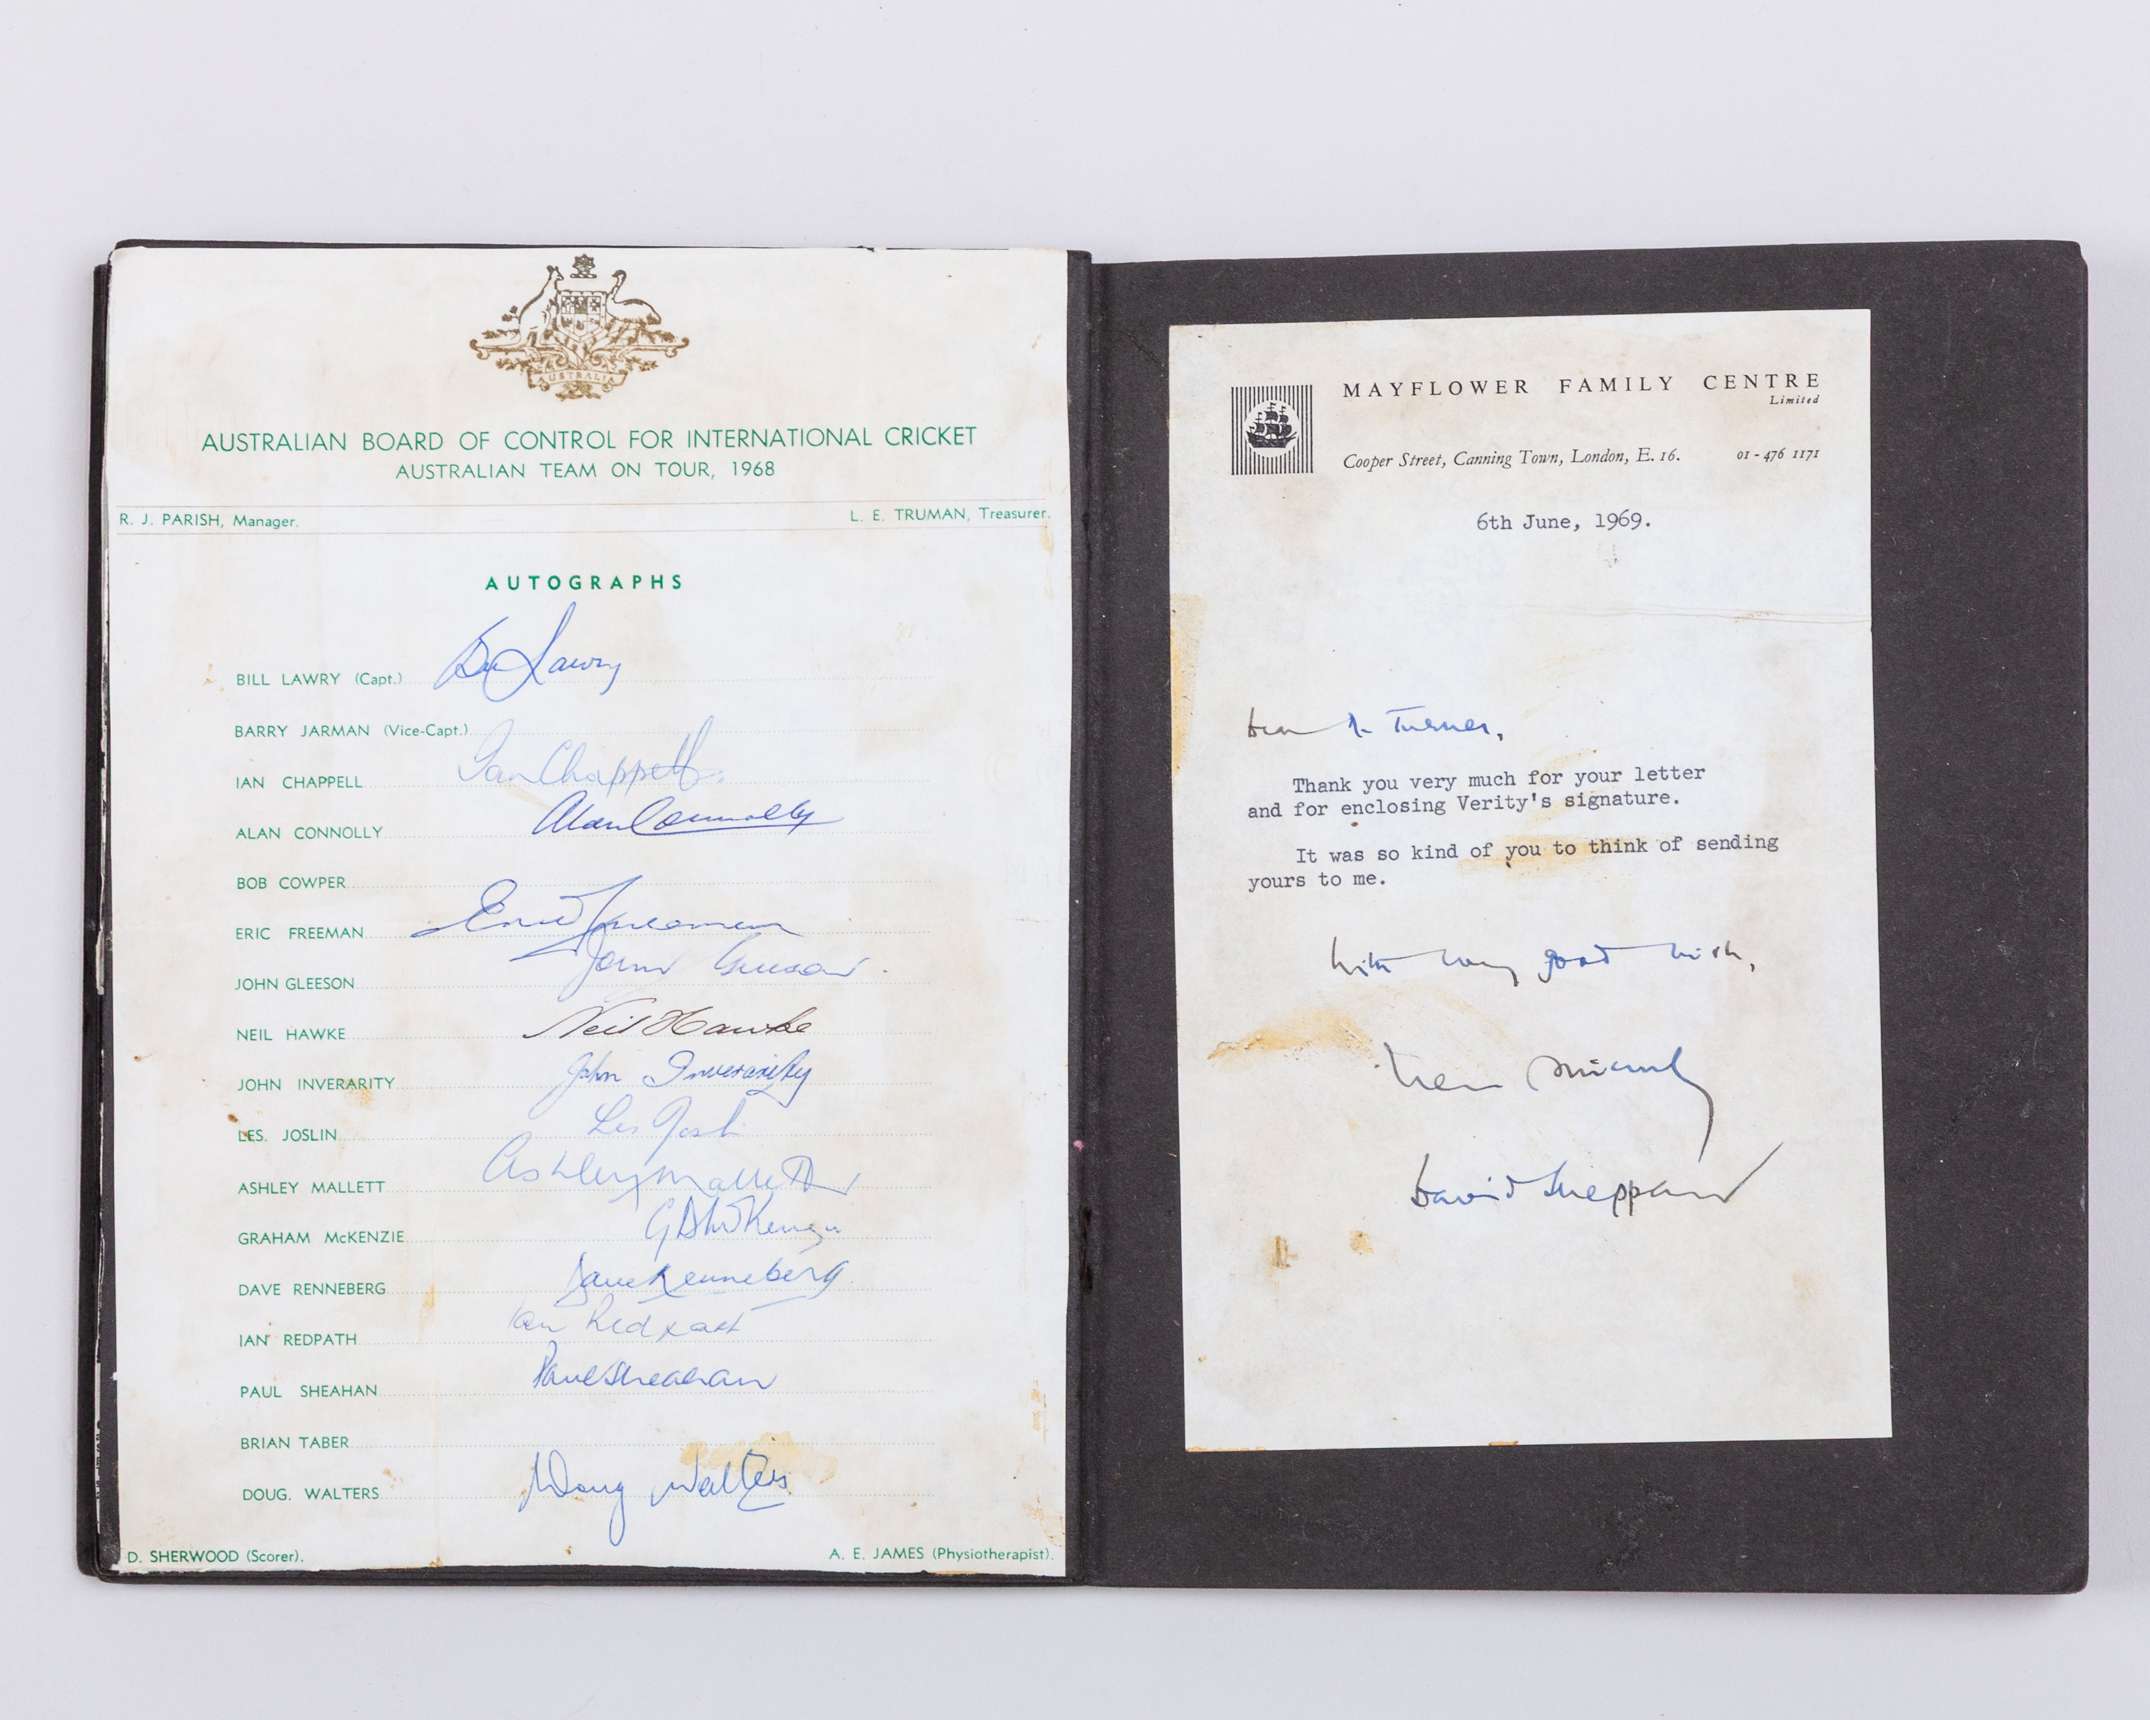 AUSTRALIA
AUSTRALIAN BOARD OF CONTROL FOR INTERNATIONAL CRICKET
AUSTRALIAN TEAM ON TOUR, 1968
R. J. PARISH, Manager. L. E. TRUMAN, Treasurer.
AUTOGRAPHS
BILL LAWRY (Capt.) Bill Lawry
BARRY JARMAN (Vice-Capt.)
IAN CHAPPELL Ian Chappell
ALAN CONNOLLY Alan Connolly
BOB COWPER
ERIC FREEMAN Eric Freeman
JOHN GLEESON John Gleeson
NEIL HAWKE Neil Hawke
JOHN INVERARITY John Inverarity
LES. JOSLIN Les Joslin
ASHLEY MALLETT Ashley Mallett
GRAHAM McKENZIE G D McKenzie
DAVE RENNEBERG Dave Renneberg
IAN REDPATH Ian Redpath
PAUL SHEAHAN Paul Sheahan
BRIAN TABER
DOUG. WALTERS Doug Walters
D. SHERWOOD (Scorer). A. E. JAMES (Physiotherapist).
MAYFLOWER FAMILY CENTRE
Limited
Cooper Street, Canning Town, London, E. 16. 01 - 476 1171
6th June, 1969.
Dear Mr Turner,
Thank you very much for your letter
and for enclosing Verity's signature.
It was so kind of you to think of sending
yours to me.
With many good wishes,
Yours sincerely
David Sheppard